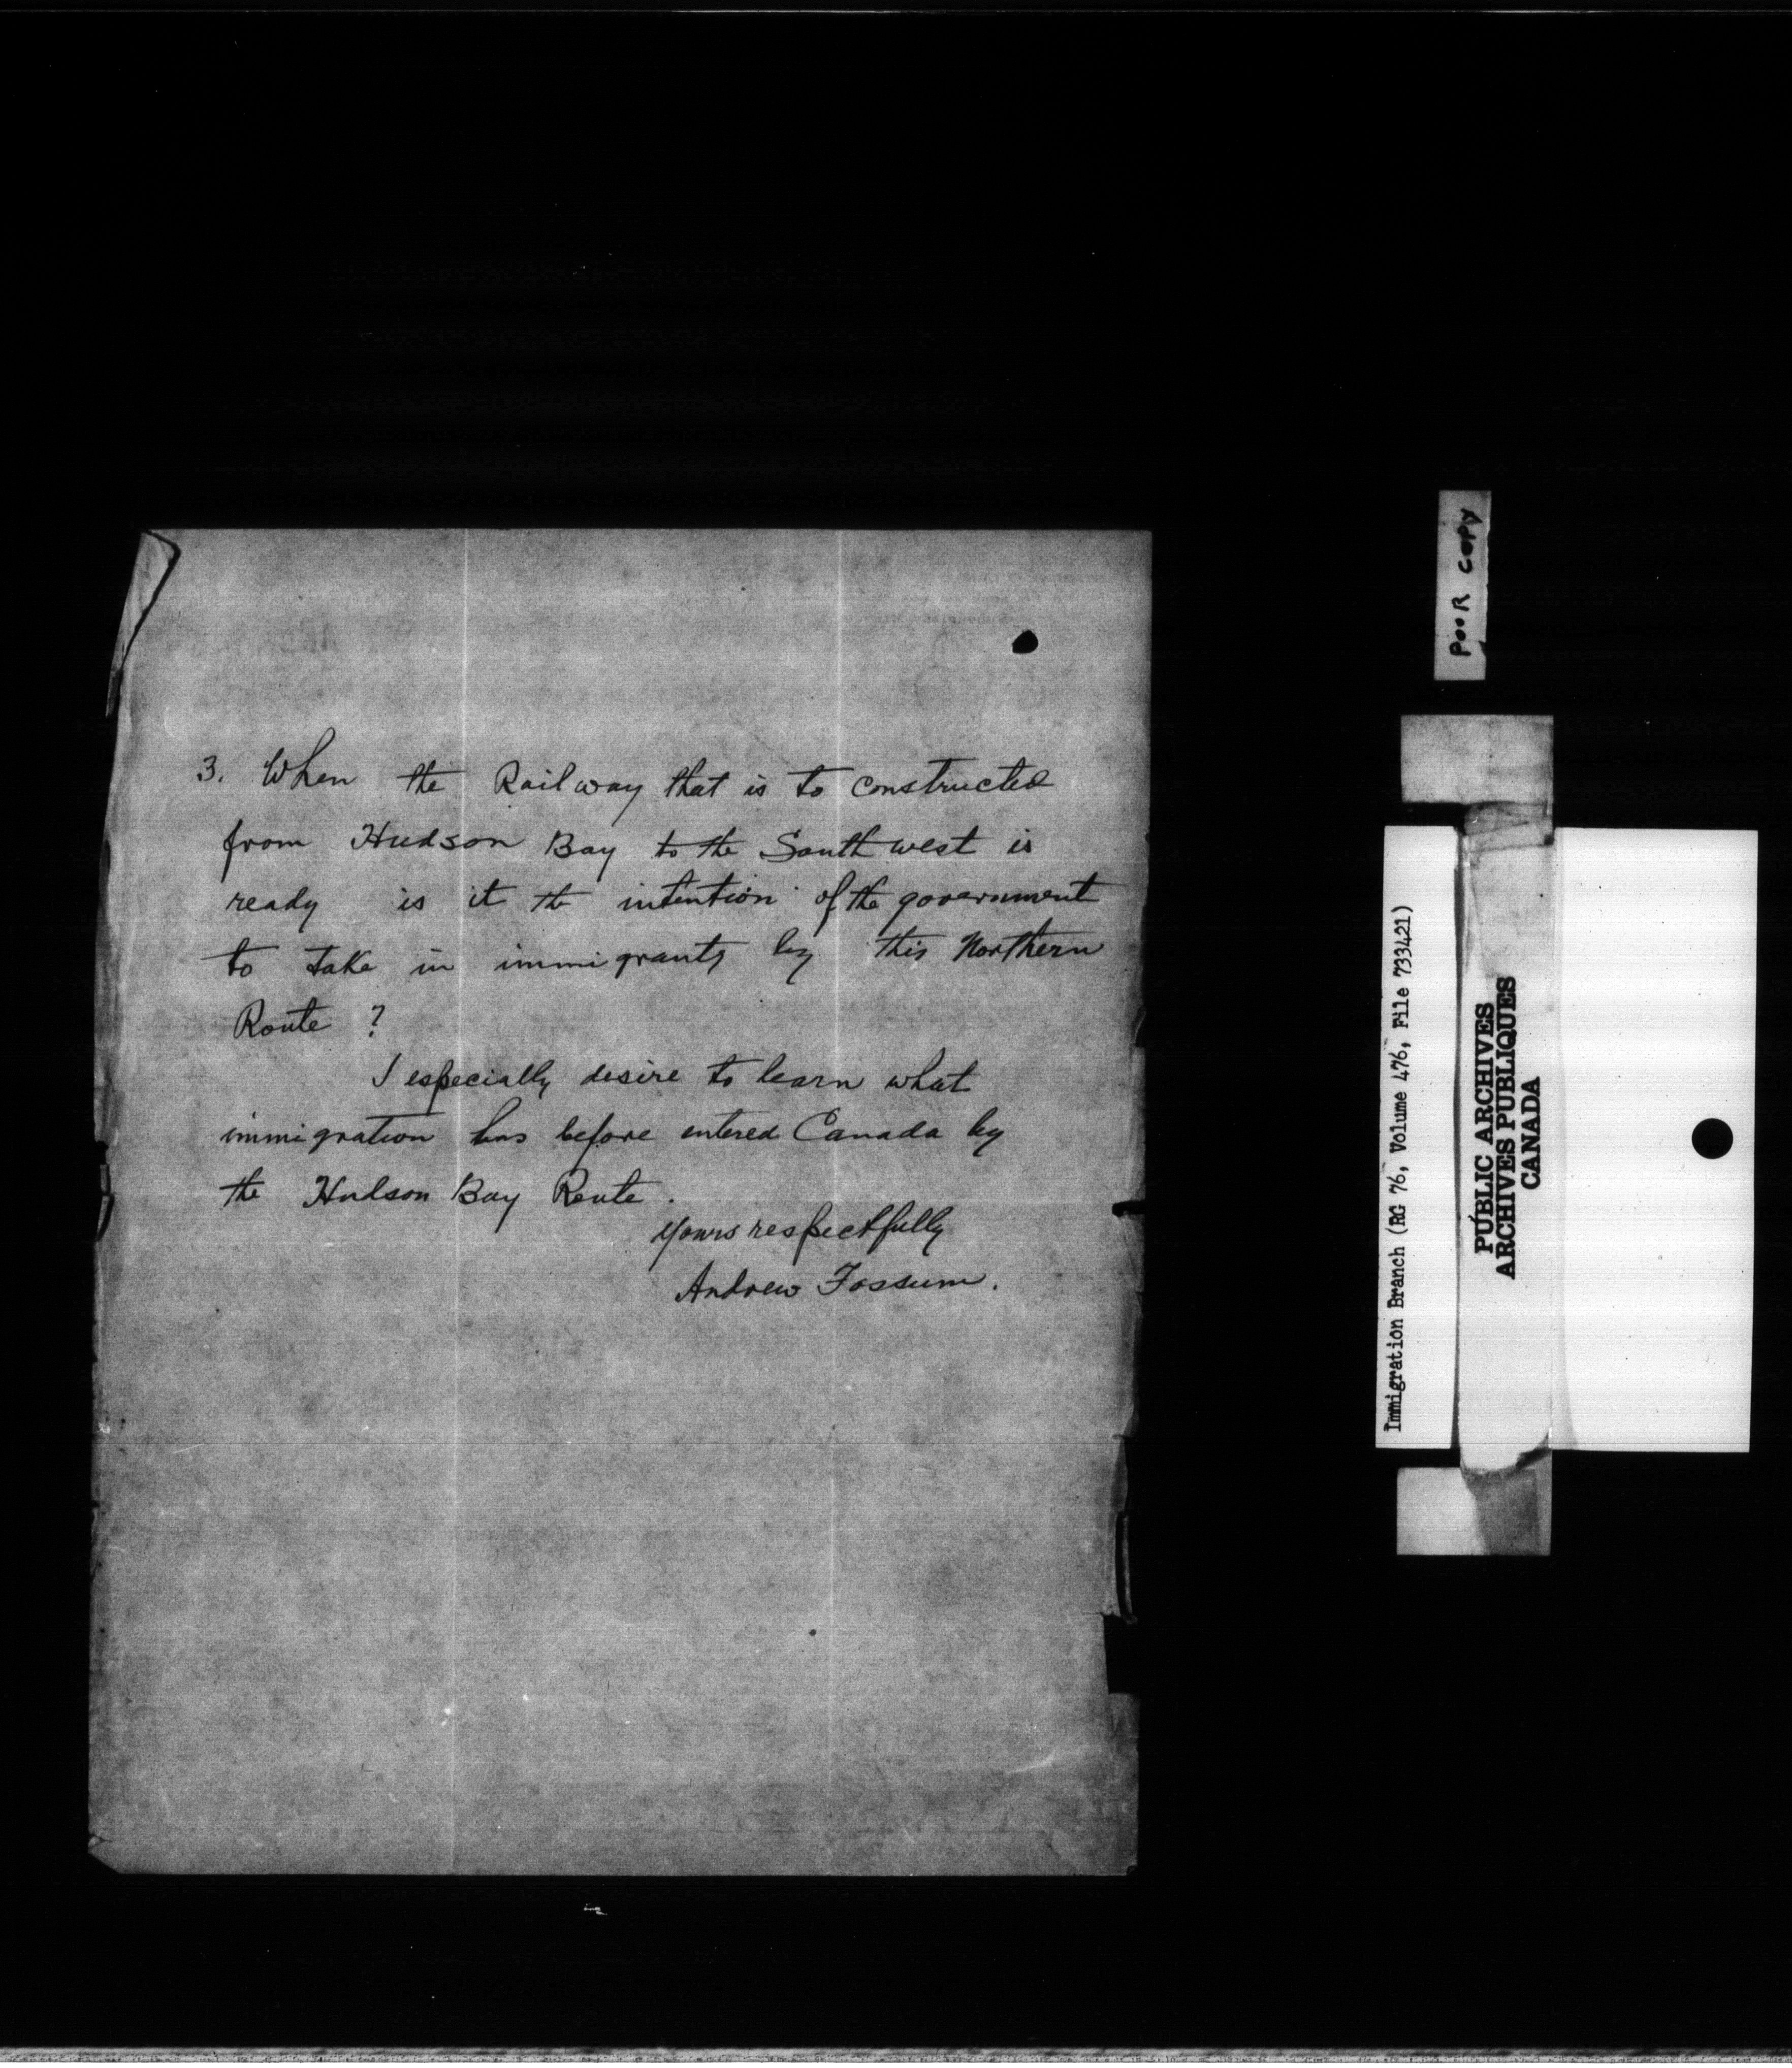 3. When the Railway that is to constructed
from Hudson Bay to the South west is
ready is it the intention of the government
to take in immigrants by this Northern
Route ?
I especially desire to learn what
immigration has before entered Canada by
the Hudson Bay Route .
Yours respectfully
Andrew Fossum .
POOR COPY
Immigration Branch (RG 76, Volume 476, File 733421)
PUBLIC ARCHIVES
ARCHIVES PUBLIQUES
CANADA